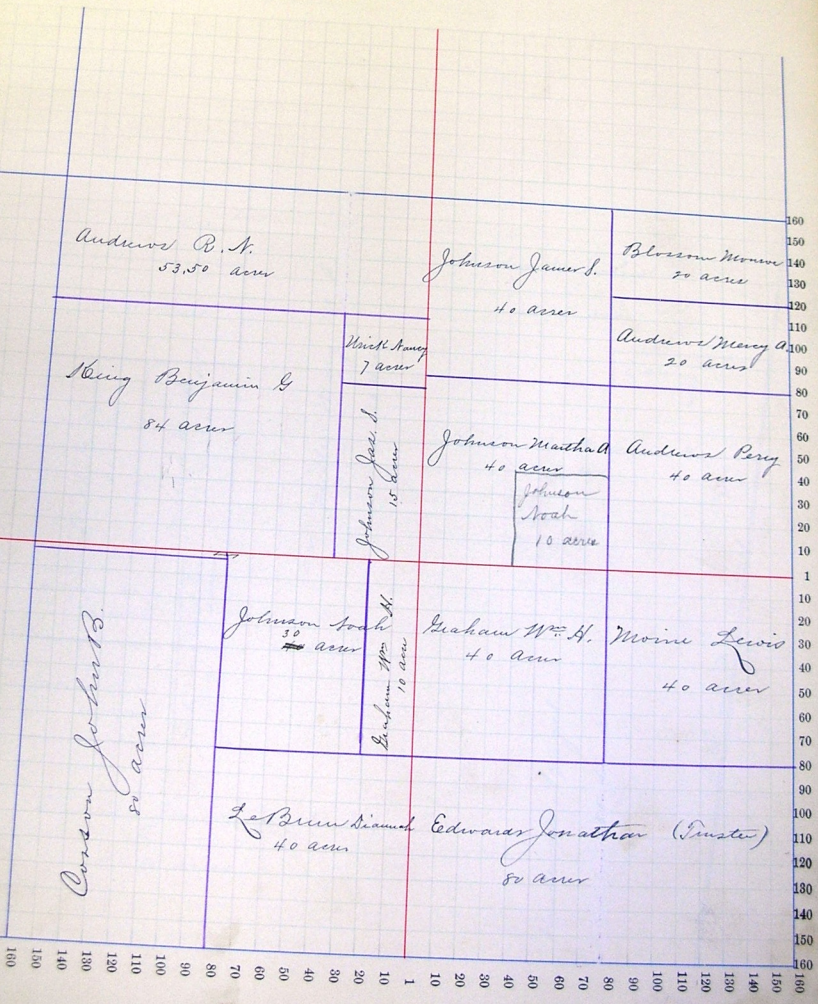 Andrews R. N.
53.50 acres
Johnson James S.
40 acres
Blossom Monroe
20 acres
Andrews Mercy A.
20 acres
King Benjamin G
84 acres
Nancy
7 acres
Johnson Jas. S.
15 acres
Johnson Martha A
40 acres
Johnson
Noah
10 acres
Andrews Percy
40 acres
Cosson John B.
80 acres
Johnson Noah
30
acres
Graham Wm H.
10 acres
Graham Wm H.
40 acres
Moine Lewis
40 acres
LeBrun Diannah
40 acres
Edwards Jonathan (Trustee)
80 acres
160
150
140
130
120
110
100
90
80
70
60
50
40
30
20
10
1
10
20
30
40
50
60
70
80
90
100
110
120
130
140
150
160
160 150 140 130 120 110 100 90 80 70 60 50 40 30 20 10 1 10 20 30 40 50 60 70 80 90 100 110 120 130 140 150 160